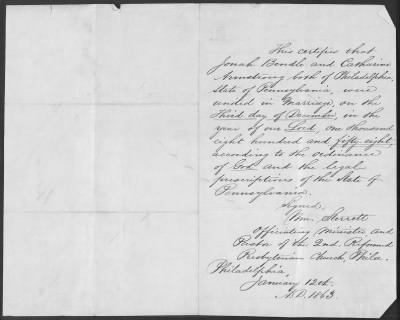 This certifies that
Jonah Bendle and Catharine
Armstrong both of Philadelphia,
State of Pennsylvania, were
united in Marriage, on the
third day of December, in the
year of our Lord, one thousand
eight hundred and fifty eight,
according to the ordinance
of God and the legal
prescriptions of the State of
Pennsylvania.
Signed,
Wm. Sterrett
Officiating Minister, and
Pastor of the 2nd. Reformed
Presbyterian Church, Phila.
Philadelphia,
January 12th.
A.D. 1863.